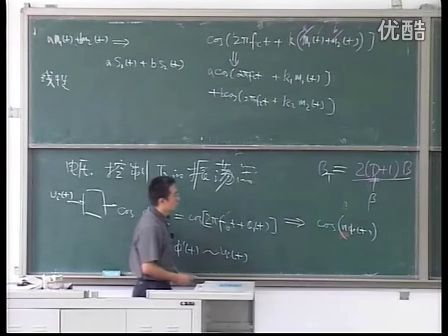 优酷
a m₁(t)+b m₂(t) ⟹
a S₁(t) + b S₂(t)
线性
cos(2πf_c t + k(m₁(t)+m₂(t))]
⇓
a cos(2πf_c t + k₁ m₁(t))
+ b cos(2πf_c t + k₂ m₂(t))
电压控制下的振荡器
B_T = 2(D+1)B
β
cos
= cos[2πf_c t +
(t)] ⟹ cos(nφ(t))
φ'(t) ~